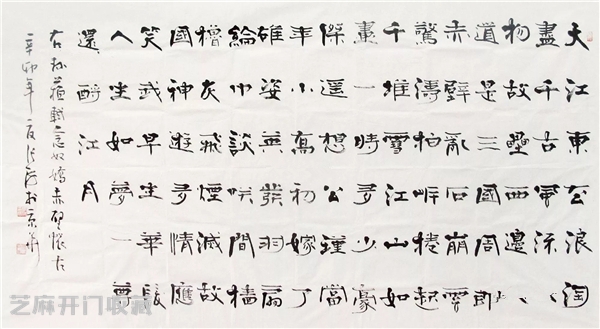 大江東去浪淘
盡千古風流人
物故壘西邊人
道是三國周郎
赤壁亂石崩雲
驚濤拍岸捲起
千堆雪江山如
畫一時多少豪
傑遥想公瑾當
年小喬初嫁了
雄姿英發羽扇
綸巾談咲間檣
櫓灰飛煙滅故
國神遊多情應
笑我早生華髮
人生如夢一尊
還酹江月
右蘇軾念奴嬌赤壁懷古
辛卯年夏於京華
芝麻开门收藏